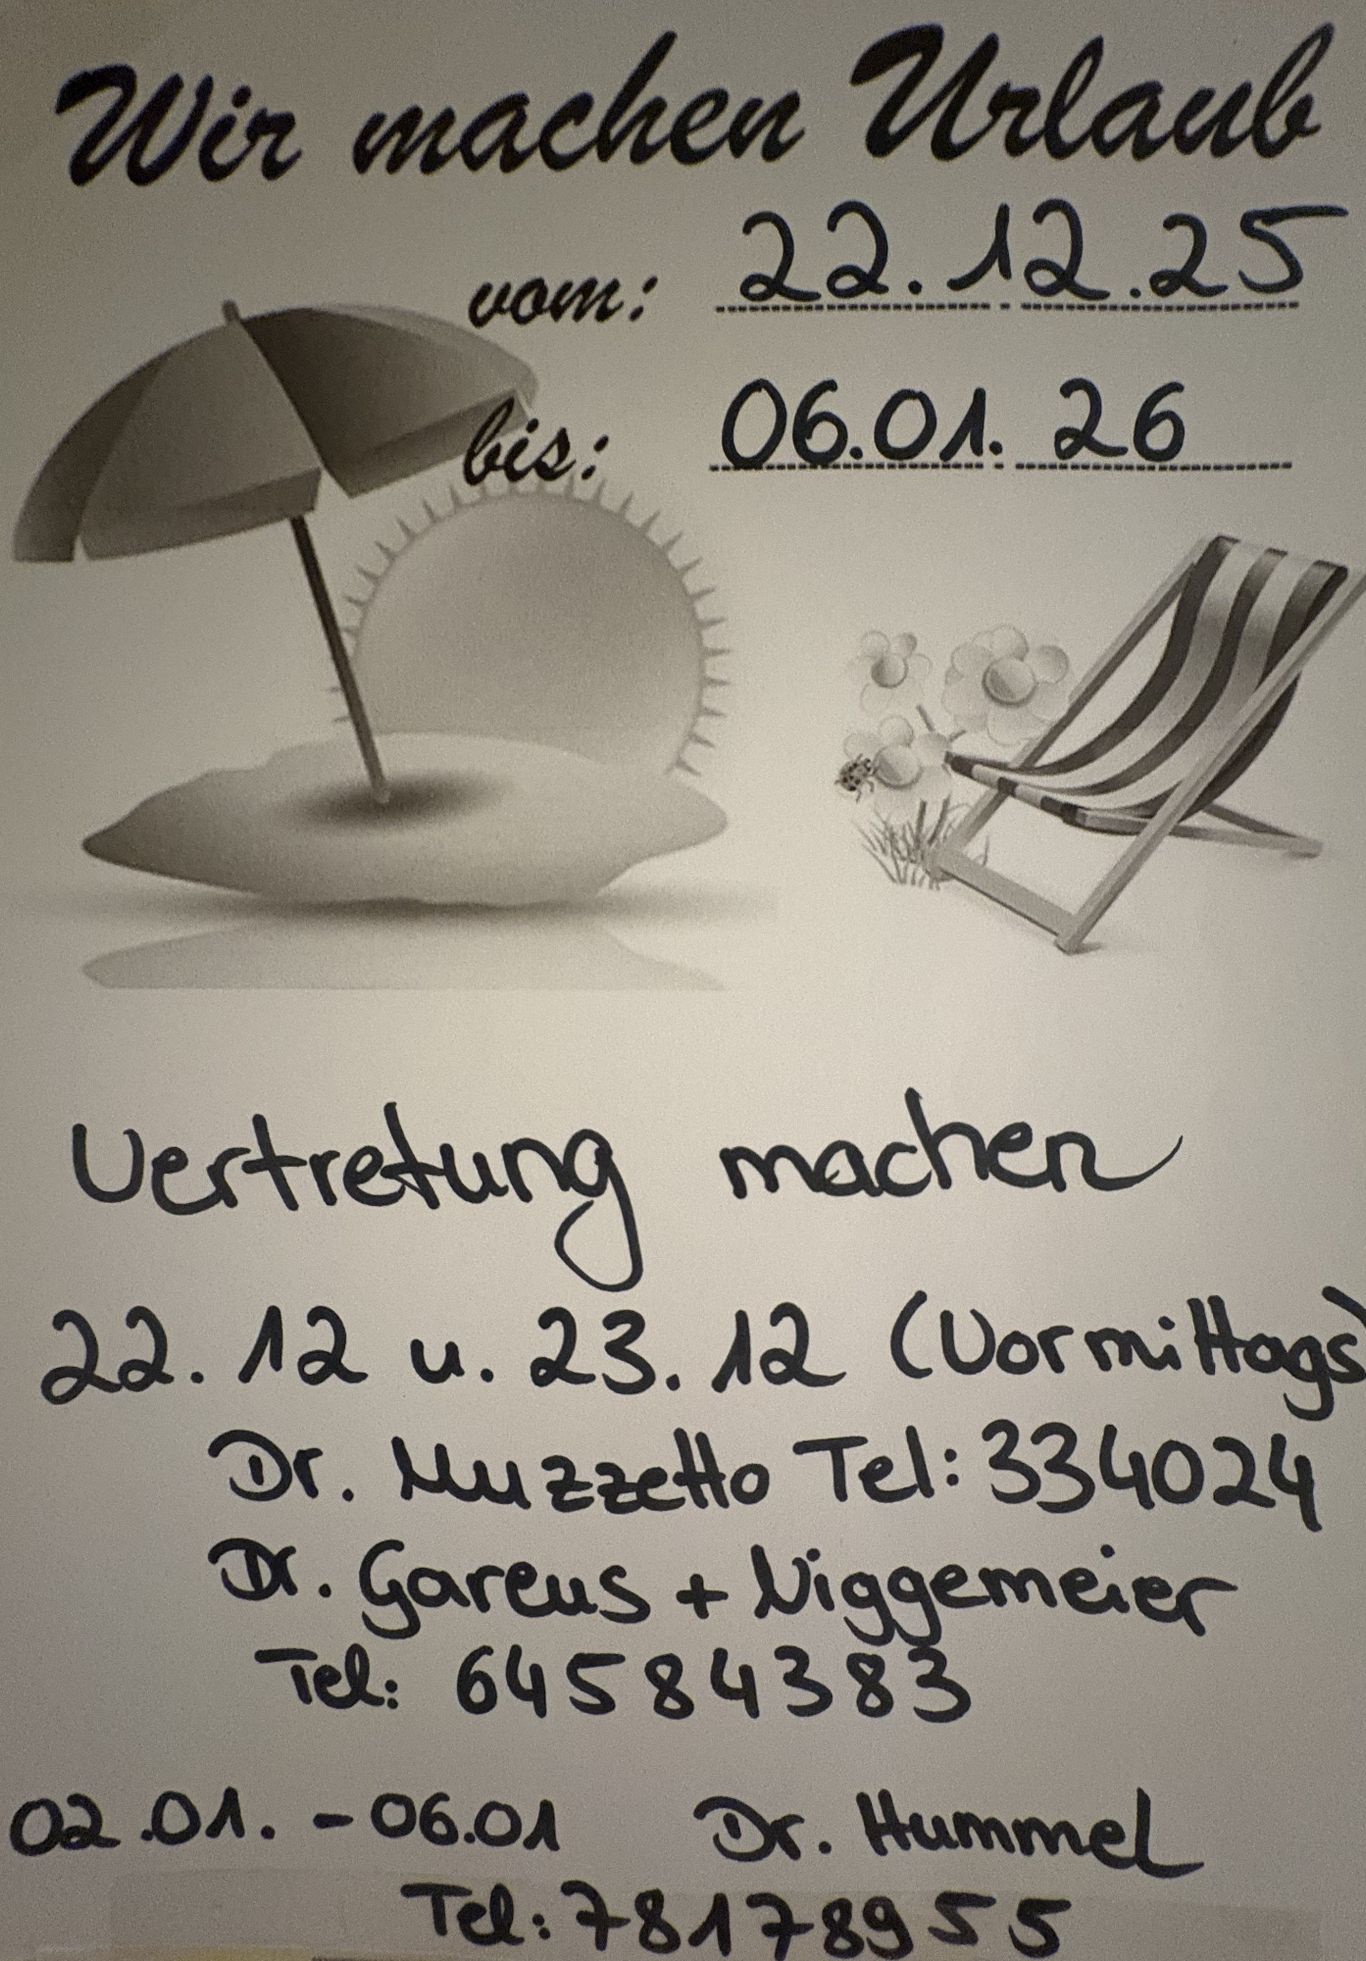 Wir machen Urlaub
vom: 22.12.25
bis: 06.01.26
Vertretung machen
22.12 u. 23.12 (Vormittags)
Dr. Muzzetto Tel: 334024
Dr. Gareus + Niggemeier
Tel: 64584383
02.01. - 06.01 Dr. Hummel
Tel: 78178955